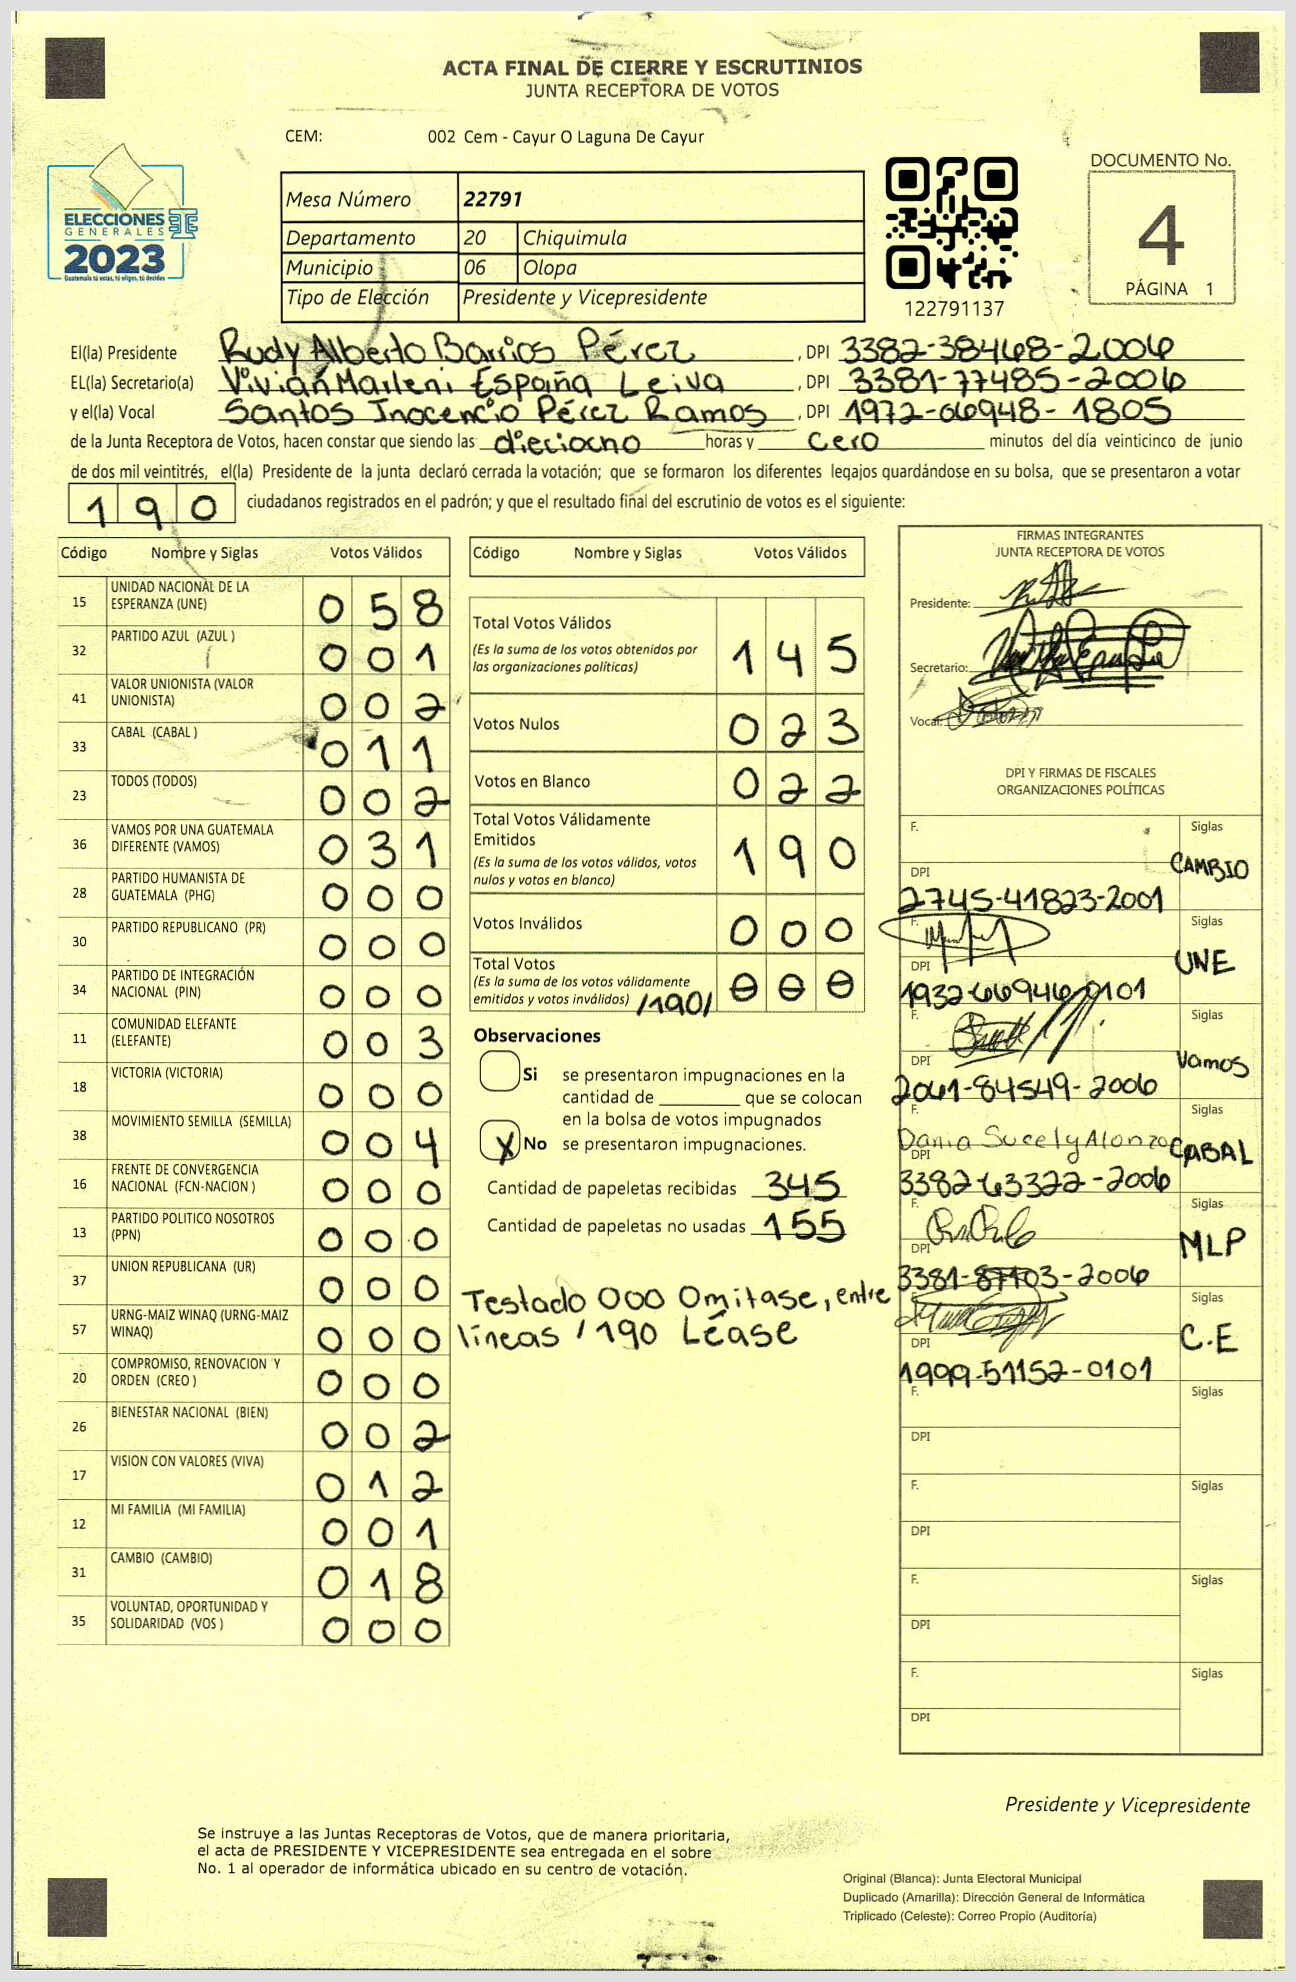 ACTA FINAL DE CIERRE Y ESCRUTINIOS
JUNTA RECEPTORA DE VOTOS
CEM: 002 Cem - Cayur O Laguna De Cayur
ELECCIONES
GENERALES
2023
Guatemala tú votas, tú eliges, tú decides
Mesa Número 22791
Departamento 20 Chiquimula
Municipio 06 Olopa
Tipo de Elección Presidente y Vicepresidente
122791137
DOCUMENTO No.
4
PÁGINA 1
El(la) Presidente Rudy Alberto Barrios Pérez, DPI 3382-38468-2006
EL(la) Secretario(a) Vivian Marleni España Leiva, DPI 3381-77485-2006
y el(la) Vocal Santos Inocencio Pérez Ramos, DPI 1972-06948-1805
de la Junta Receptora de Votos, hacen constar que siendo las dieciocho horas y cero minutos del día veinticinco de junio
de dos mil veintitrés, el(la) Presidente de la junta declaró cerrada la votación; que se formaron los diferentes legajos guardándose en su bolsa, que se presentaron a votar
190 ciudadanos registrados en el padrón; y que el resultado final del escrutinio de votos es el siguiente:
Código Nombre y Siglas Votos Válidos
15 UNIDAD NACIONAL DE LA ESPERANZA (UNE) 058
32 PARTIDO AZUL (AZUL ) 001
41 VALOR UNIONISTA (VALOR UNIONISTA) 002
33 CABAL (CABAL ) 011
23 TODOS (TODOS) 002
36 VAMOS POR UNA GUATEMALA DIFERENTE (VAMOS) 031
28 PARTIDO HUMANISTA DE GUATEMALA (PHG) 000
30 PARTIDO REPUBLICANO (PR) 000
34 PARTIDO DE INTEGRACIÓN NACIONAL (PIN) 000
11 COMUNIDAD ELEFANTE (ELEFANTE) 003
18 VICTORIA (VICTORIA) 000
38 MOVIMIENTO SEMILLA (SEMILLA) 004
16 FRENTE DE CONVERGENCIA NACIONAL (FCN-NACION ) 000
13 PARTIDO POLITICO NOSOTROS (PPN) 000
37 UNION REPUBLICANA (UR) 000
57 URNG-MAIZ WINAQ (URNG-MAIZ WINAQ) 000
20 COMPROMISO, RENOVACION Y ORDEN (CREO ) 000
26 BIENESTAR NACIONAL (BIEN) 002
17 VISION CON VALORES (VIVA) 012
12 MI FAMILIA (MI FAMILIA) 001
31 CAMBIO (CAMBIO) 018
35 VOLUNTAD, OPORTUNIDAD Y SOLIDARIDAD (VOS ) 000
Código Nombre y Siglas Votos Válidos
Total Votos Válidos 145
(Es la suma de los votos obtenidos por
las organizaciones políticas)
Votos Nulos 023
Votos en Blanco 022
Total Votos Válidamente
Emitidos 190
(Es la suma de los votos válidos, votos
nulos y votos en blanco)
Votos Inválidos 000
Total Votos 000
(Es la suma de los votos válidamente
emitidos y votos inválidos) /190/
Observaciones
Si se presentaron impugnaciones en la
cantidad de ________ que se colocan
en la bolsa de votos impugnados
X No se presentaron impugnaciones.
Cantidad de papeletas recibidas 345
Cantidad de papeletas no usadas 155
Testado 000 Omitase, entre
líneas /190 Léase
FIRMAS INTEGRANTES
JUNTA RECEPTORA DE VOTOS
Presidente:
Secretario:
Vocal:
DPI Y FIRMAS DE FISCALES
ORGANIZACIONES POLÍTICAS
F. Siglas CAMBIO
DPI 2745-41823-2001
F. Siglas UNE
DPI 1932-66946-0101
F. Siglas Vamos
DPI 2061-84549-2006
F. Dania Sucely Alonzo Siglas CABAL
DPI 3382-63322-2006
F. Siglas MLP
DPI 3381-87103-2006
F. Siglas C.E
DPI 1999-51152-0101
F. Siglas
DPI
F. Siglas
DPI
F. Siglas
DPI
F. Siglas
DPI
Presidente y Vicepresidente
Se instruye a las Juntas Receptoras de Votos, que de manera prioritaria,
el acta de PRESIDENTE Y VICEPRESIDENTE sea entregada en el sobre
No. 1 al operador de informática ubicado en su centro de votación.
Original (Blanca): Junta Electoral Municipal
Duplicado (Amarilla): Dirección General de Informática
Triplicado (Celeste): Correo Propio (Auditoría)